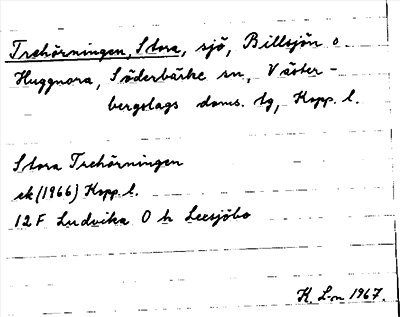 Trehörningen, Stora, sjö, Billsjön o
Huggnora, Söderbärke sn, Väster-
bergslags doms. tg, Kopp. l.
Stora Trehörningen
ek (1966) Kopp. l.
12 F Ludvika O h Leesjöbo
K. L:n 1967.